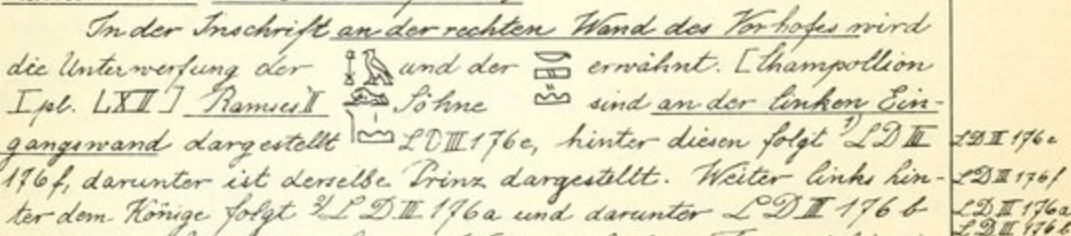 In der Inschrift an der rechten Wand des Vorhofes wird
die Unterwerfung der und der erwähnt. [Champollion
I pl. LXII] Ramses II Söhne sind an der linken Ein-
gangswand dargestellt LD III 176e, hinter diesen folgt 1) LD III LD III 176e
176f, darunter ist derselbe Prinz dargestellt. Weiter links hin- LD III 176f
ter dem Könige folgt LD III 176a und darunter LD III 176b LD III 176a
LD III 176b